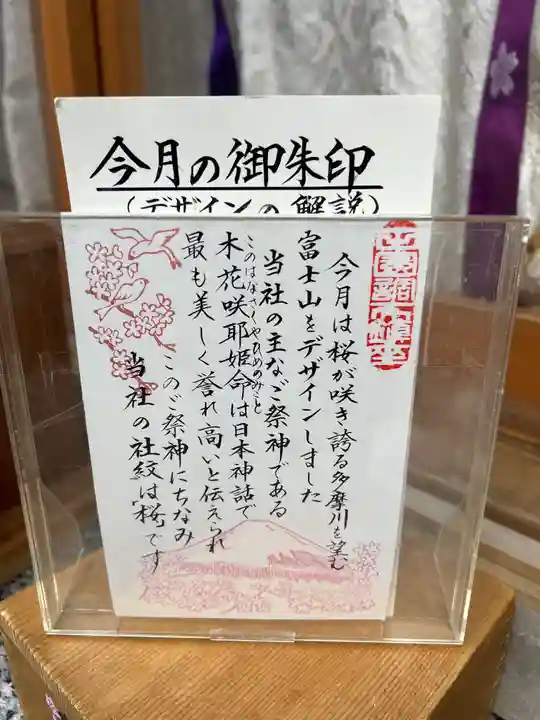 今月の御朱印
(デザインの解説)
今月は桜が咲き誇る多摩川を望む
富士山をデザインしました
当社の主なご祭神である
このはなさくやひめのみこと
木花咲耶姫命は日本神話で
最も美しく誉れ高いと伝えられ
このご祭神にちなみ
当社の社紋は"桜"です